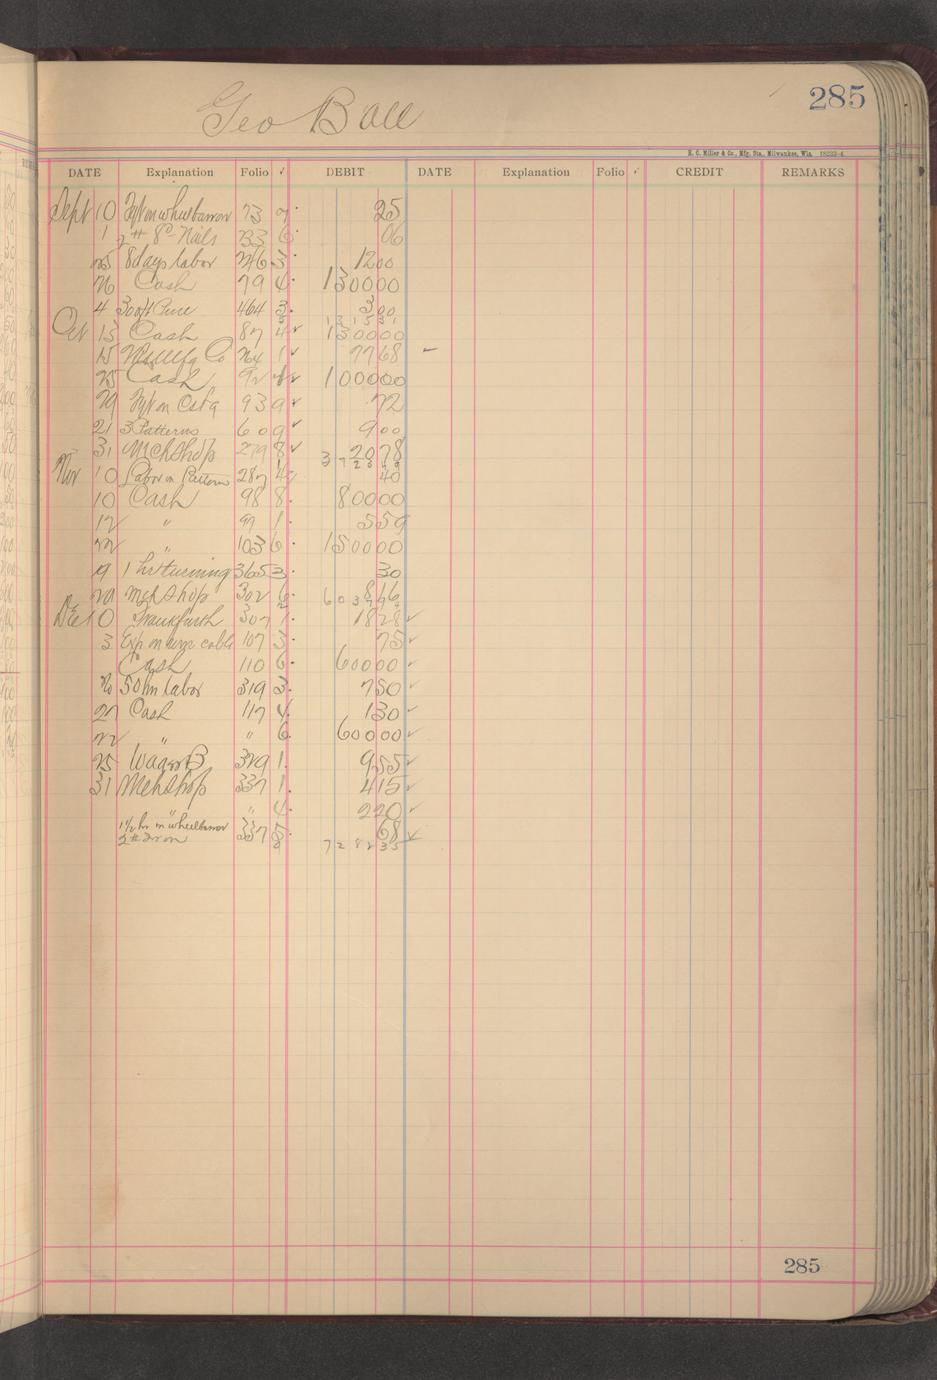 285
Geo Ball
H. C. Miller & Co., Mfg. Sta., Milwaukee, Wis. 18233-4
DATE Explanation Folio ✓ DEBIT DATE Explanation Folio ✓ CREDIT REMARKS
Sept 10 Frt on wheelbarrow 73 9 25
1 2# 8d Nails 233 6 06
25 8 days labor 246 3 1200
26 Cash 79 4 130000
4 300 ft 464 3 300
1 3 1 5 3 1
Oct 13 Cash 87 4 ✓ 130000
15 Co 264 1 ✓ 7768 –
25 Cash 92 ✓ 100000
29 Frt on Cstg 93 9 ✓ 72
21 3 Patterns 60 9 ✓ 900
31 Mch Shop 279 8 ✓ 2078
Nov 10 Labor on Patterns 287 4 40
10 Cash 98 8 80000
12 " 99 1 559
22 " 103 6 150000
19 1 hr turning 365 3 30
20 Mch Shop 302 6 866
Dec 10 Frankfurth 307 1 1828 ✓
3 Exp on wire cable 107 3 75 ✓
Cash 110 6 60000 ✓
20 50 hr labor 319 3 750 ✓
27 Cash 117 4 130 ✓
22 " " 6 60000 ✓
25 Wagon B 329 1 955 ✓
31 Mch Shop 337 1 415 ✓
" " 4 220 ✓
1½ hr on wheelbarrow
2# Iron 337 5 68 ✓
7 2 8 2 3 5
285